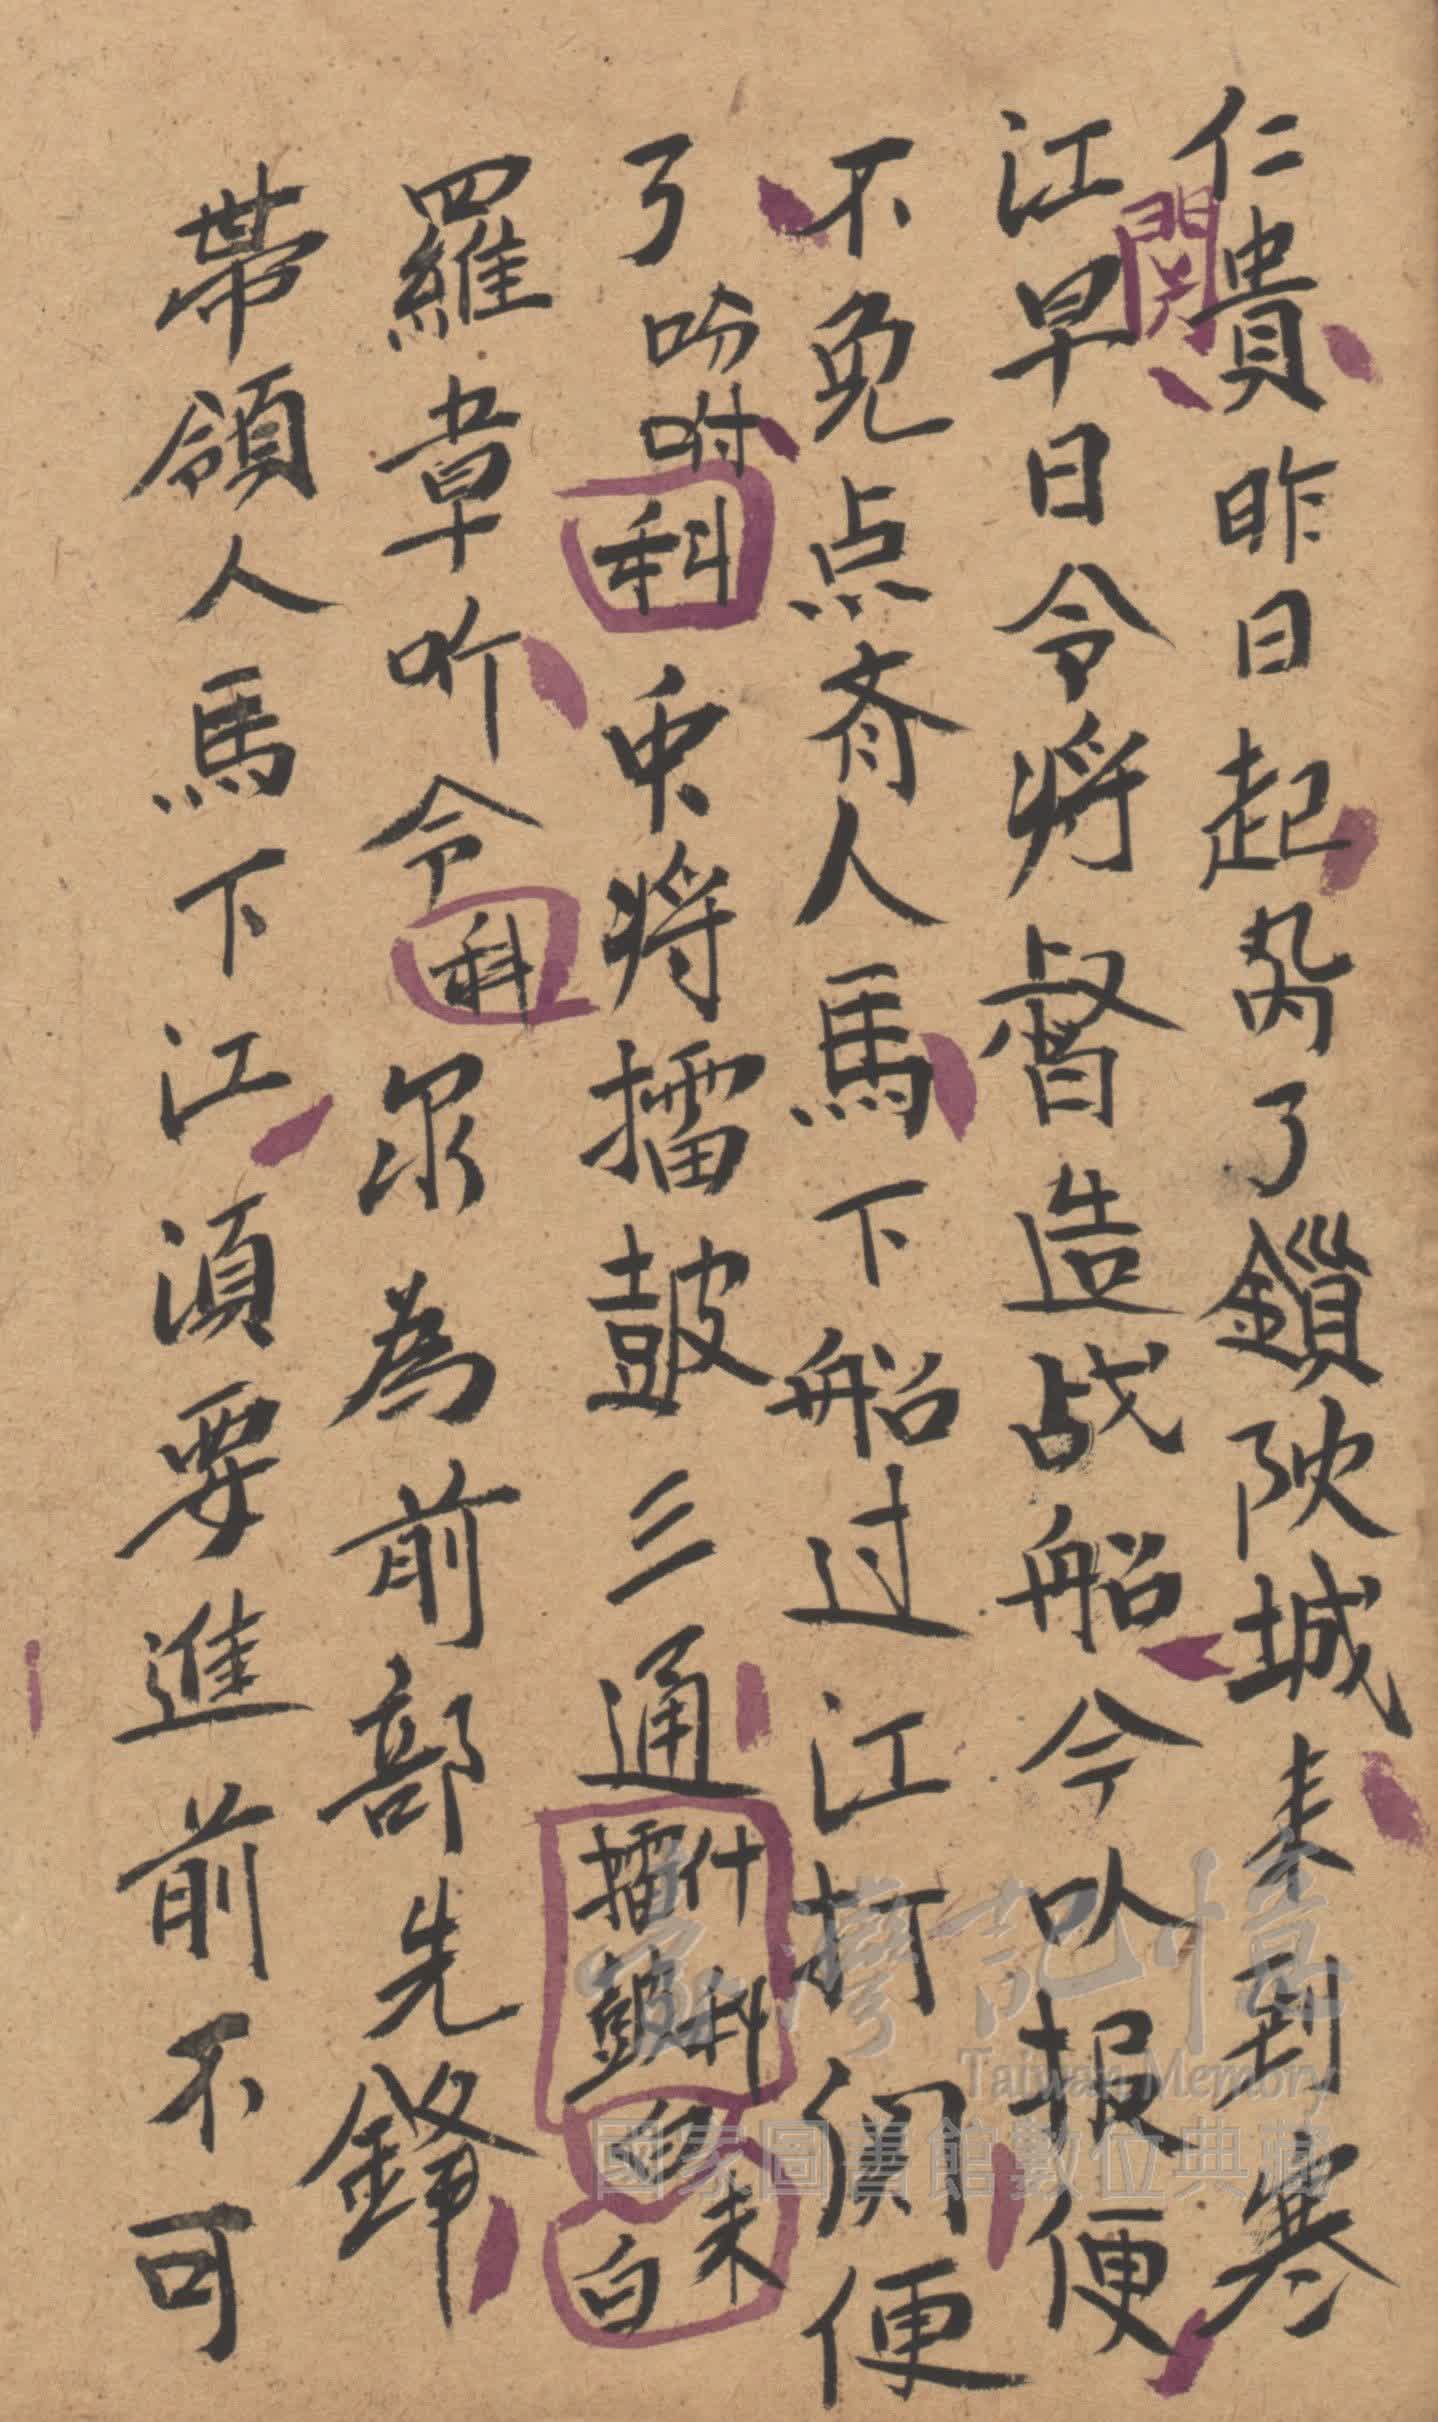 仁貴昨日起兵了鎖陝城来到寒
江早日令将督造战船今吩报便
関
不免点齐人馬下船过江打関便
了吩咐科
衆将擂鼓三通
什科
擂鼓
未白
羅章吩令科
尔為前部先鋒
帯領人馬下江須要進前不可
臺灣記憶
Taiwan Memory
國家圖書館數位典藏